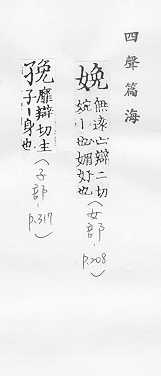 四聲篇海
娩無遠亡辯二切
婉小也媚好也(女部.p.208)
㝃靡辯切生
子丨身也(子部.p.317)